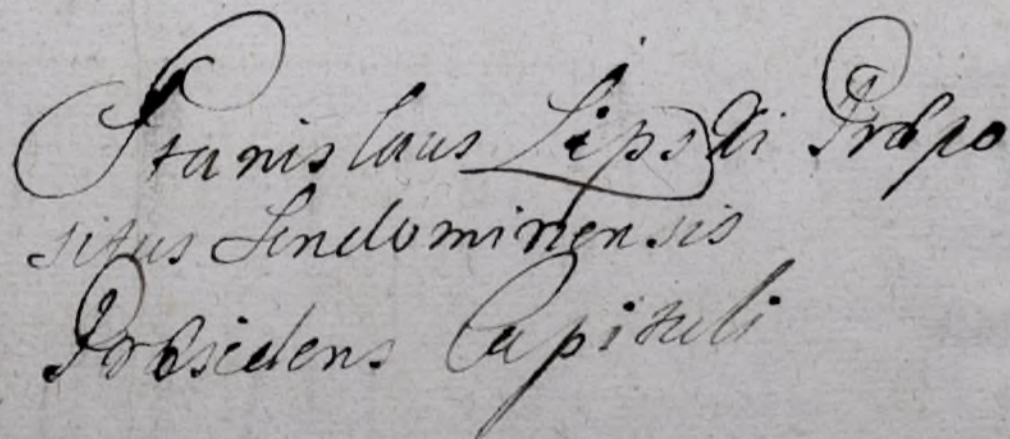 Stanislaus Lipski Præpo
situs Sendominensis
Præsidens Capituli